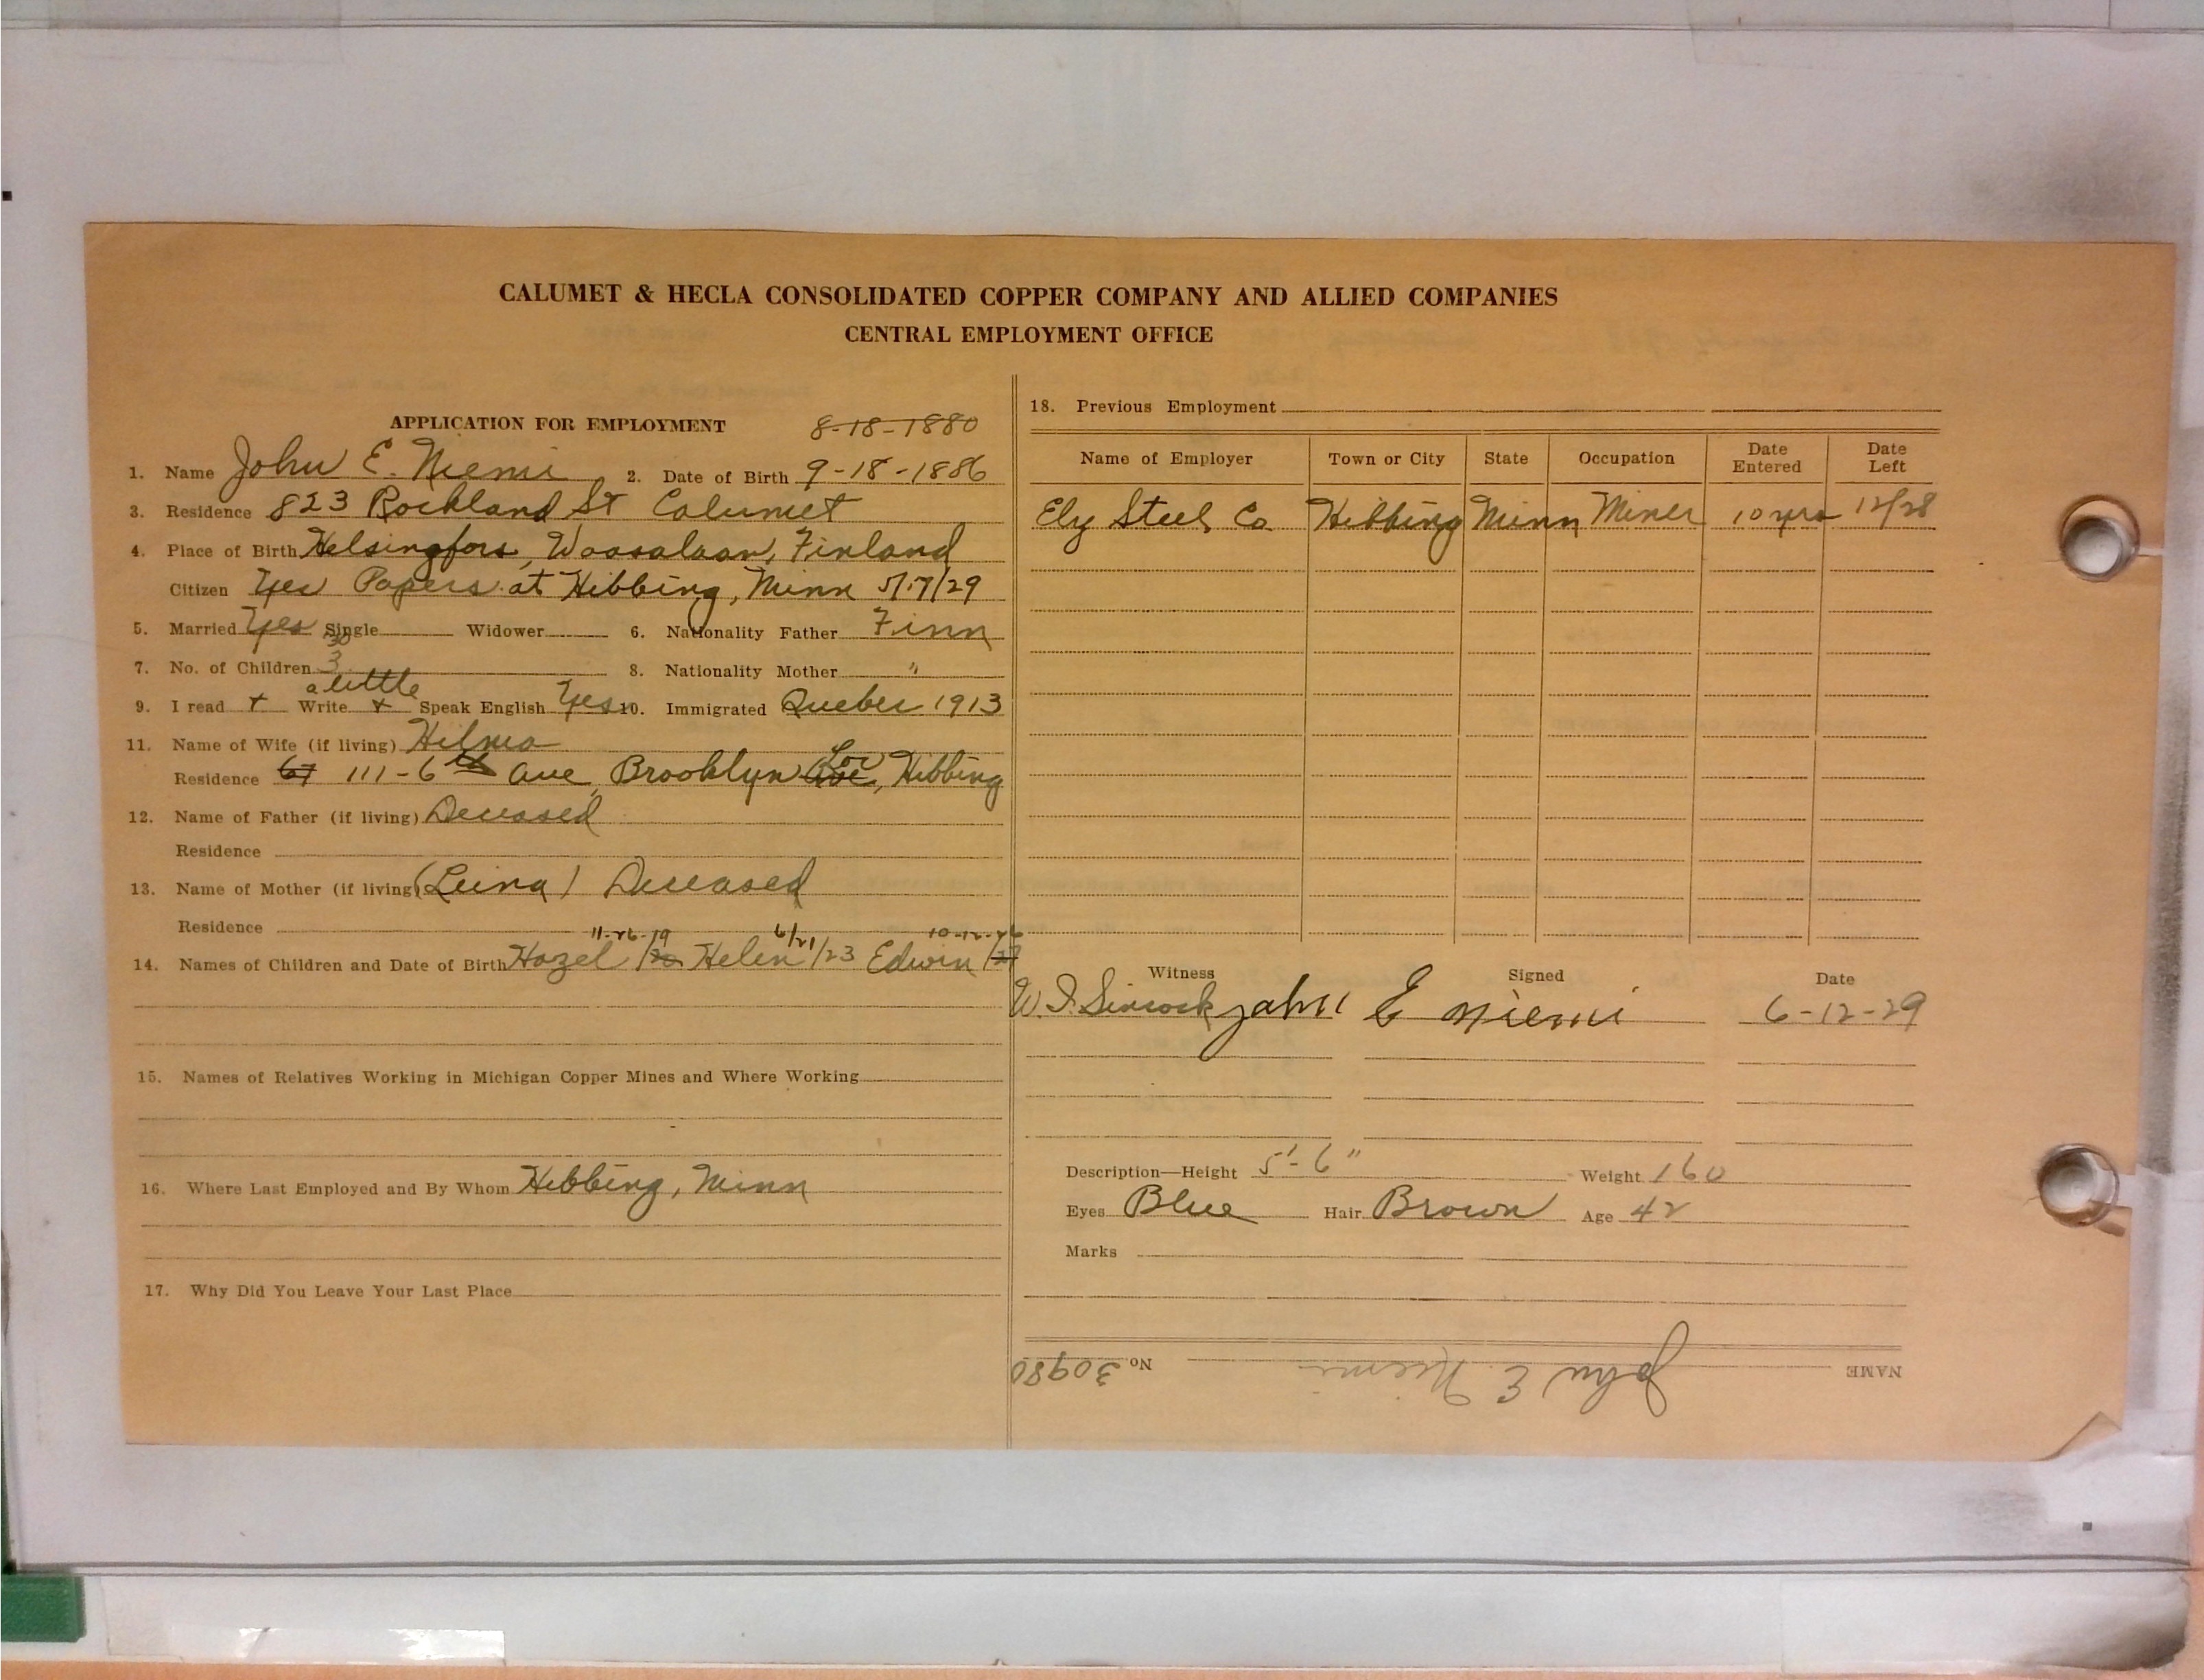 CALUMET & HECLA CONSOLIDATED COPPER COMPANY AND ALLIED COMPANIES
CENTRAL EMPLOYMENT OFFICE
APPLICATION FOR EMPLOYMENT 8-18-1880
1. Name John E. Niemi 2. Date of Birth 9-18-1886
3. Residence 823 Rockland St Calumet
4. Place of Birth Helsingfors, Woasalaan, Finland
Citizen Yes Papers at Hibbing, Minn 5/17/29
5. Married Yes Single Widower 6. Nationality Father Finn
30
7. No. of Children 3 8. Nationality Mother "
a little
9. I read + Write + Speak English Yes 10. Immigrated Quebec 1913
11. Name of Wife (if living) Hilma
Loc
Residence 67 111-6th Ave, Brooklyn Ave, Hibbing
12. Name of Father (if living) Deceased
Residence
13. Name of Mother (if living) (Leina) Deceased
Residence
11-26-19 6/21 10-12-26
14. Names of Children and Date of Birth Hazel /20 Helen /23 Edwin /27
15. Names of Relatives Working in Michigan Copper Mines and Where Working
16. Where Last Employed and By Whom Hibbing, Minn
17. Why Did You Leave Your Last Place
18. Previous Employment
Name of Employer Town or City State Occupation Date Entered Date Left
Ely Steel Co Hibbing Minn Miner 10 yrs 12/28
Witness Signed Date
W. J. Sincock John E Niemi 6-12-29
Description—Height 5'-6" Weight 160
Eyes Blue Hair Brown Age 42
Marks
NAME John E. Niemi No. 30980